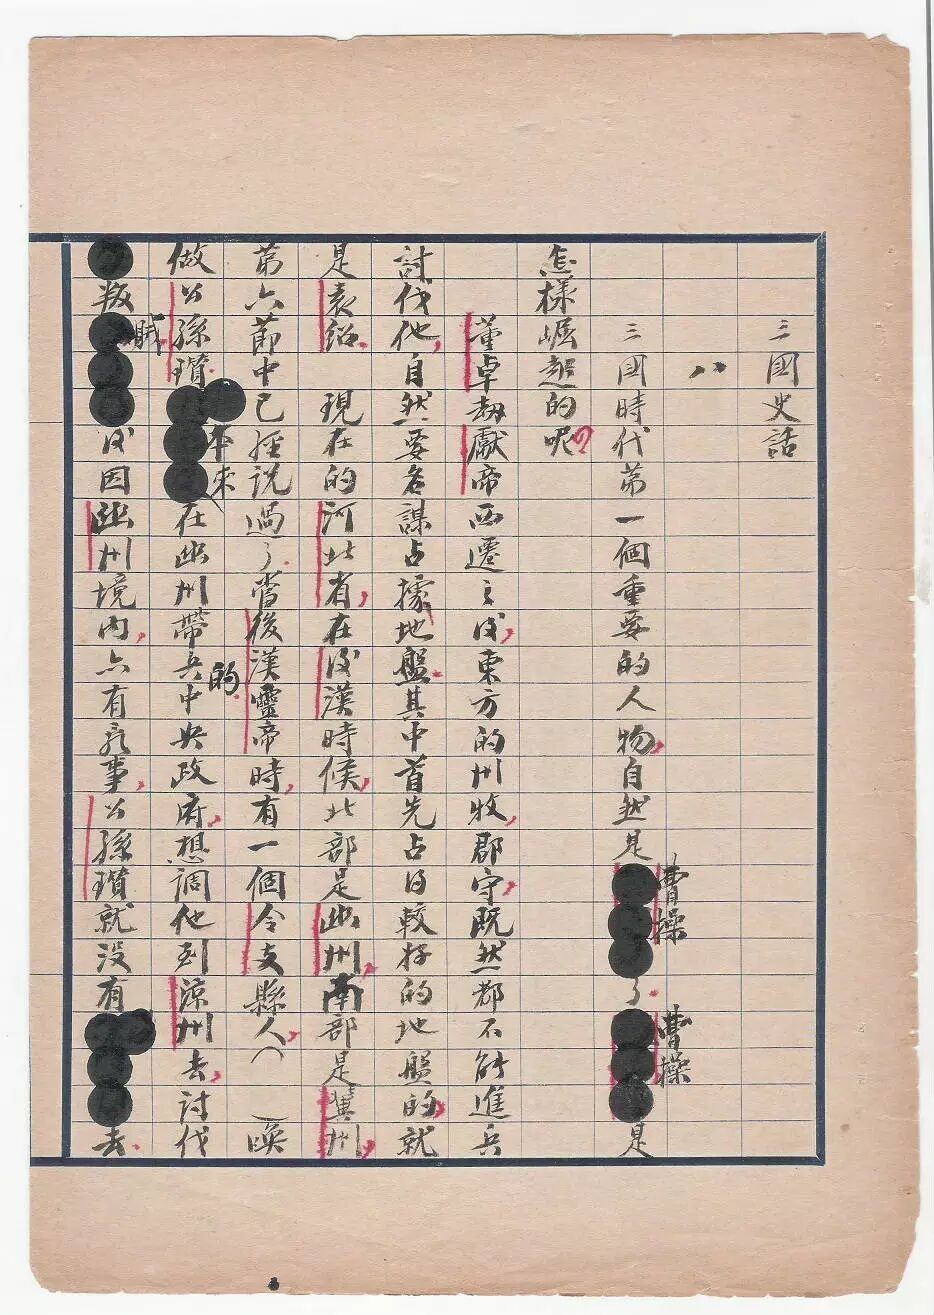 三國史話
八
三國時代第一個重要的人物,自然是曹操了.曹操是
怎樣崛起的呢?
董卓劫獻帝西遷之後,東方的州牧,郡守,既然都不能進兵
討伐他,自然要各謀占據地盤.其中首先占得較好的地盤的,就
是袁紹.現在的河北省,在後漢時候,北部是幽州,南部是冀州,
第六節中已經說過了.當後漢靈帝時,有一個令支縣人,( )喚
做公孫瓚.本來在幽州帶兵的.中央政府,想調他到涼州去,討伐
叛賊後因幽州境內,亦有亂事,公孫瓚就沒有去.